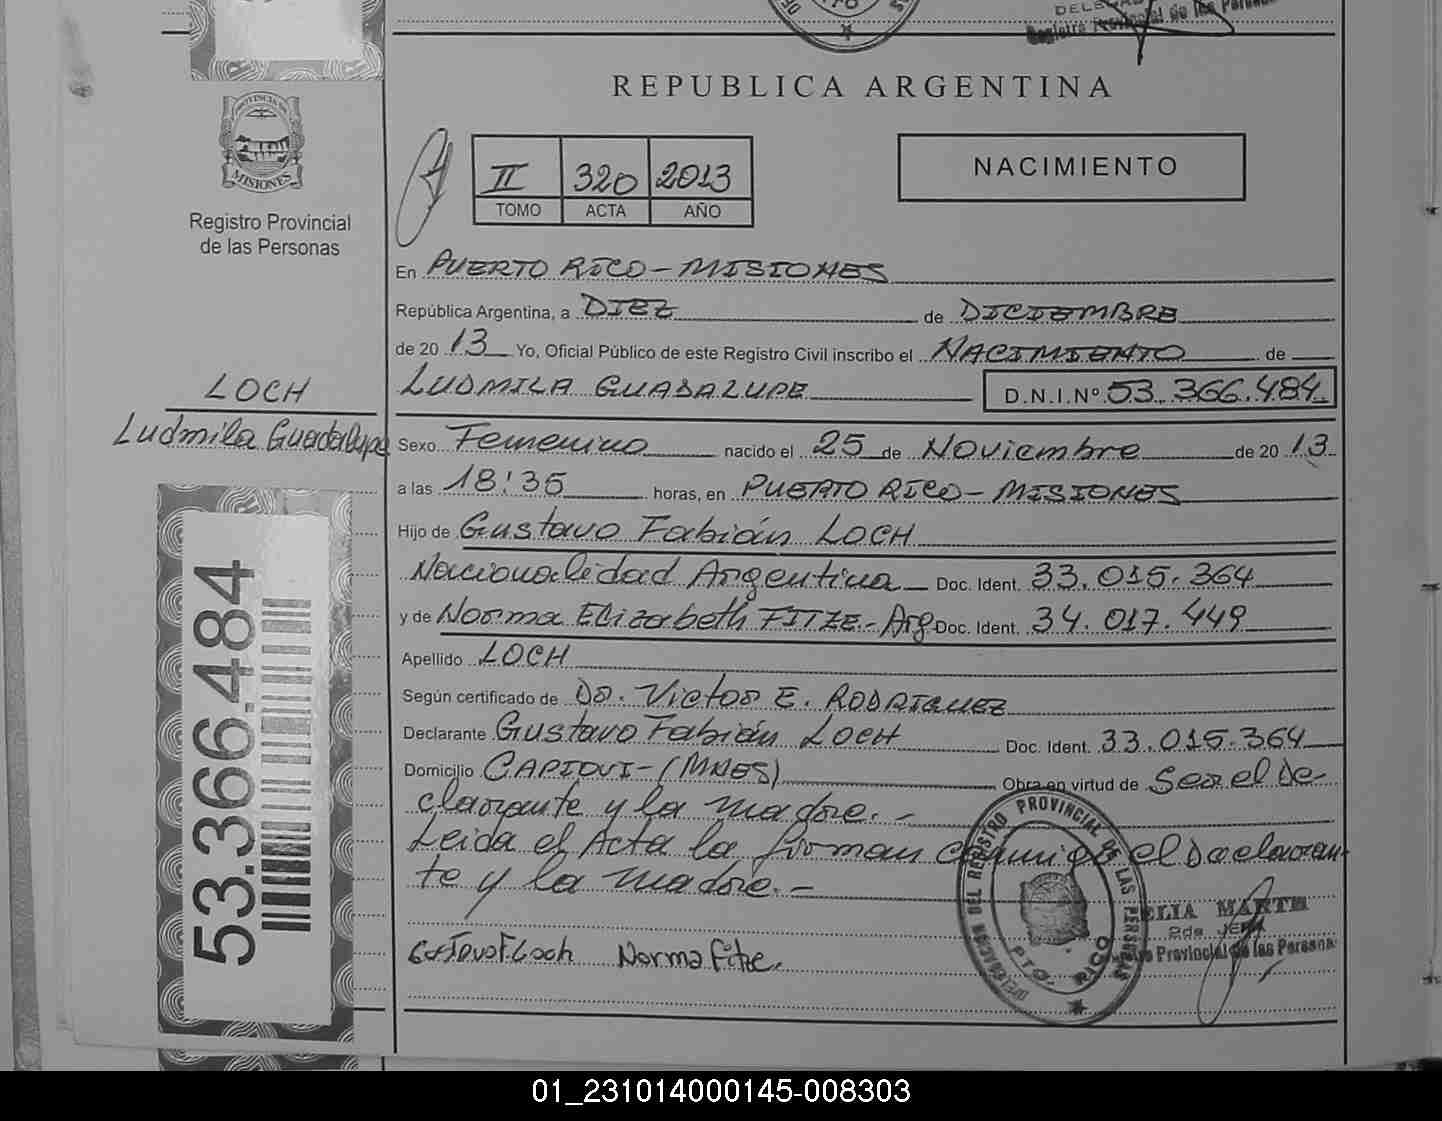 DELEGA
Registro Provincial de las Persona
REPUBLICA ARGENTINA
PROVINCIA DE
MISIONES
Registro Provincial
de las Personas
II 320 2013
TOMO ACTA AÑO
NACIMIENTO
En PUERTO RICO - MISIONES
República Argentina, a DIEZ de DICIEMBRE
de 20 13 Yo, Oficial Público de este Registro Civil inscribo el NACIMIENTO de
LUDMILA GUADALUPE D.N.I.Nº 53.366.484
LOCH
Ludmila Guadalupe
Sexo Femenino nacido el 25 de Noviembre de 20 13
a las 18:35 horas, en PUERTO RICO - MISIONES
Hijo de Gustavo Fabián LOCH
Nacionalidad Argentina Doc. Ident. 33.015.364
y de Norma Elizabeth FITZE - Arg Doc. Ident. 34.017.449
Apellido LOCH
Según certificado de Dr. Victor E. RODRIGUEZ
Declarante Gustavo Fabián LOCH Doc. Ident. 33.015.364
Domicilio CAPIOVI - (MNES) Obra en virtud de Ser el De-
clarante y la madre. -
Leida el Acta la firman conmigo el Declaran-
te y la madre. -
53.366.484
DELEGACION DEL REGISTRO PROVINCIAL DE LAS PERSONAS
PTO. RICO
ELIA MARTH
2da JEFA
Provincial de las Persona
Gustavo F. Loch Norma Fitze.
01_231014000145-008303